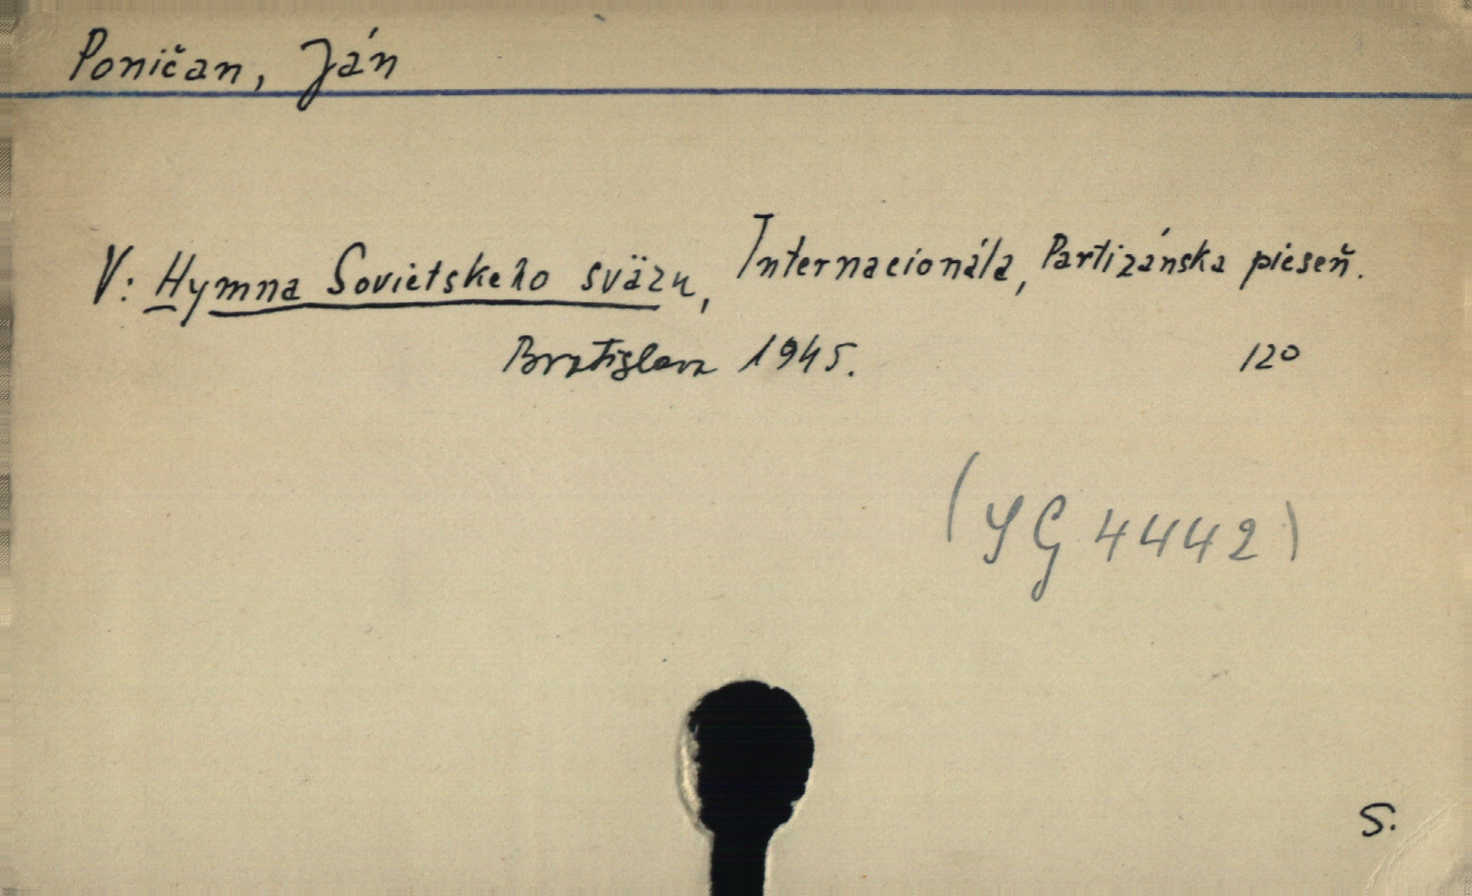 Poničan, Ján
V: Hymna Sovietskeho sväzu, Internacionála, Partizánska pieseň.
Bratislava 1945. 120
(SG 4442)
S.